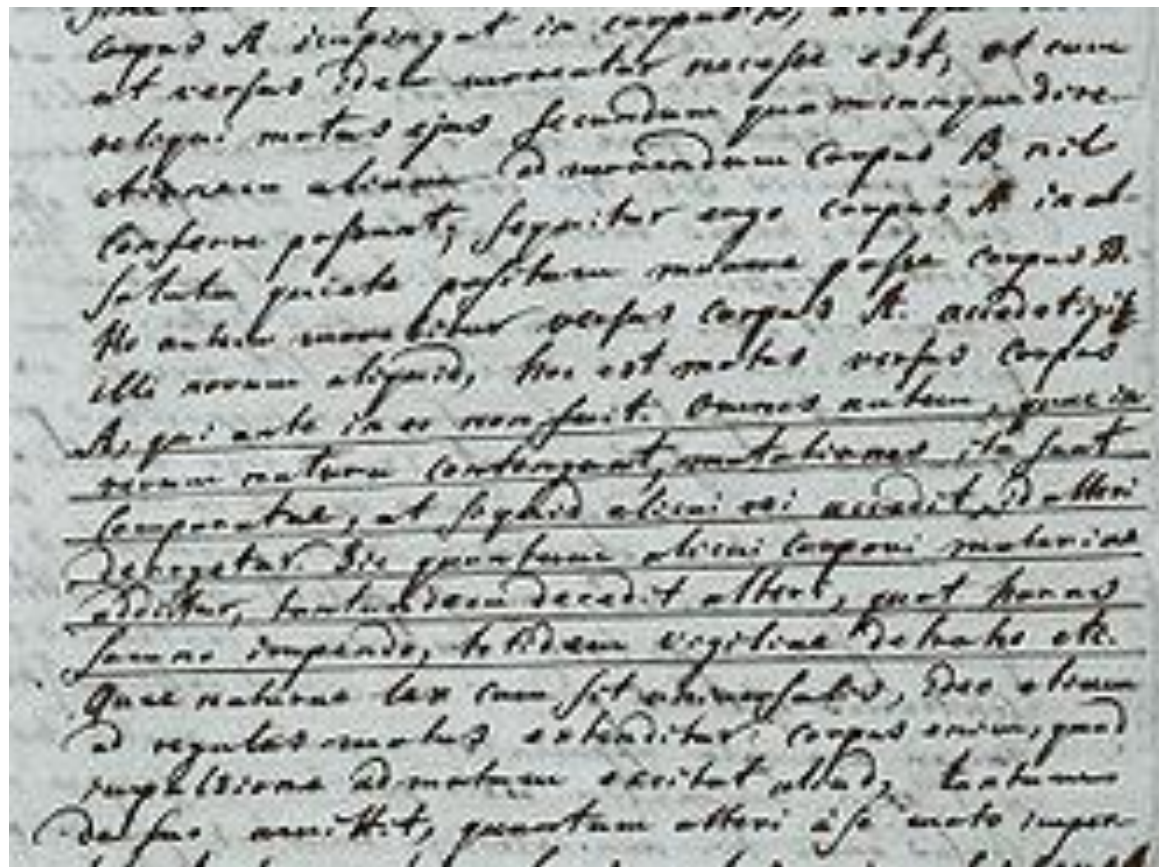 corpus A impingat in corpus B,
ut versus idem moveatur necesse est, et cum
reliqui motus ejus secundum quamcunque dire-
ctionem aliam ad movendum corpus B nil
conferre possunt; sequitur ergo corpus A in ab-
soluta quiete positum movere posse corpus B.
Hoc autem movebitur versus corpus A. accedet igit
illi novum aliquid, hoc est motus versus corpus
A, qui ante in eo non fuit. Omnes autem, quae in
rerum natura contingunt, mutationes ita sunt
comparatae, ut siquid alicui rei accedit, id alteri
derogetur. Sic quantum alicui corpori materiae
additur, tantundem decedit alteri, quot horas
somno impendo, totidem vigiliae detraho etc.
Quae naturae lex cum sit universalis, ideo etiam
ad regulas motus extenditur: corpus enim, quod
impulsione ad motum excitat aliud, tantum
de suo amittit, quantum alteri à se moto imper-